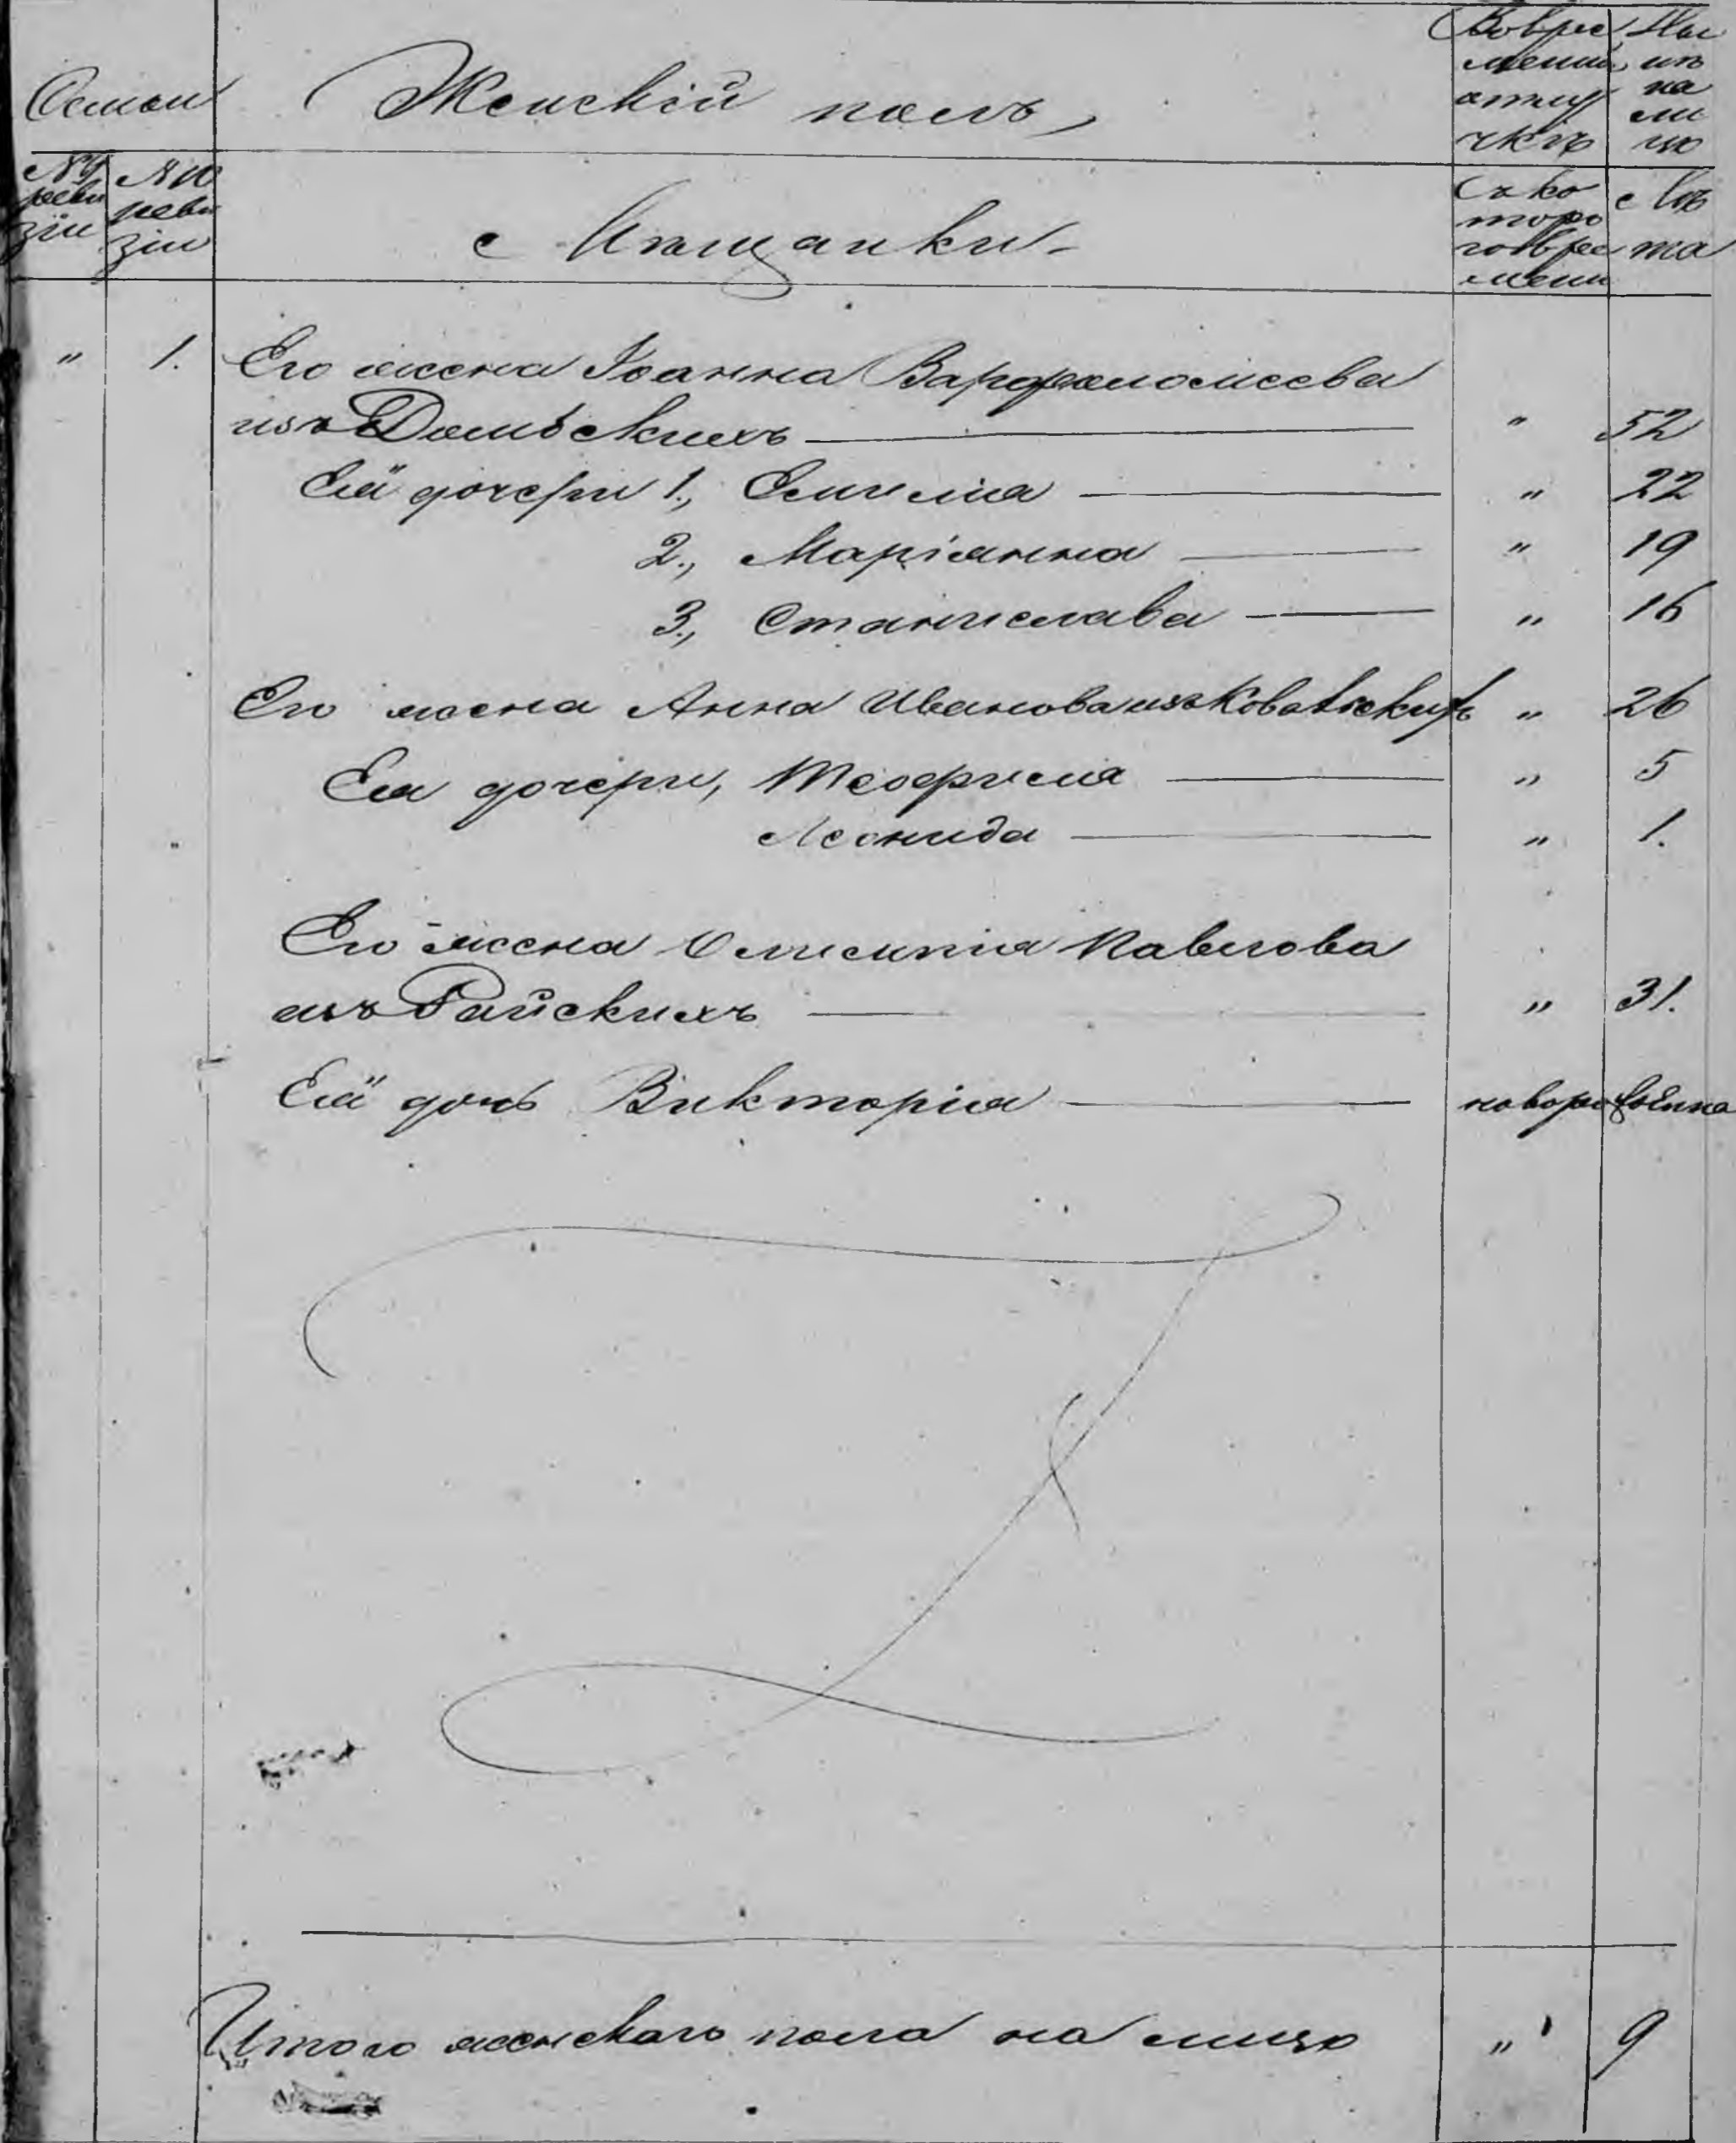 Семьи
Женскій полъ
Вовре
менной
отлу
чкѣ
Ны
нѣ
на
ли
цо
№ 9
реви
зіи
№ 10
реви
зіи
Мѣщанки
Съ ко
тора
го вре
мени
Лѣ
та
" 1. Его жена Іоанна Варфоломеева
изъ Домбскихъ " 52
Ея дочери 1., Эмилія " 22
2., Маріянна " 19
3., Станислава " 16
Его жена Анна Иванова изъ Ковальскихъ " 26
Ея дочери, Теофилія " 5
Леонида " 1.
Его жена Олимпія Павлова
изъ Райскихъ " 31.
Ея дочь Викторія новорожденна
Итого женскаго пола на лицо " 9